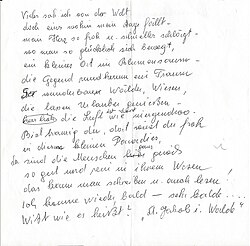 Vieles sah ich von der Welt
doch eins wohin mein Auge fällt.
mein Herz so froh u. schneller schlägt.
wo man so glücklich sich bewegt,
ein kleiner Ort im Blumensaum
die Gegend rundherum ein Traum
Der wunderbare Wälder, Wiesen,
die lassen Urlauber genießen.
die Luft wie nirgendwo.
Bist traurig du, dort wirst du froh
in diesem kleinen Paradies,
da sind die Menschen ganz gewiß
so gut und rein in ihrem Wesen,
das kann man schreiben u. auch lesen,
ich komme wieder bald – sehr bald:...
Wißt wie es heißt? St. Jakob i. Walde